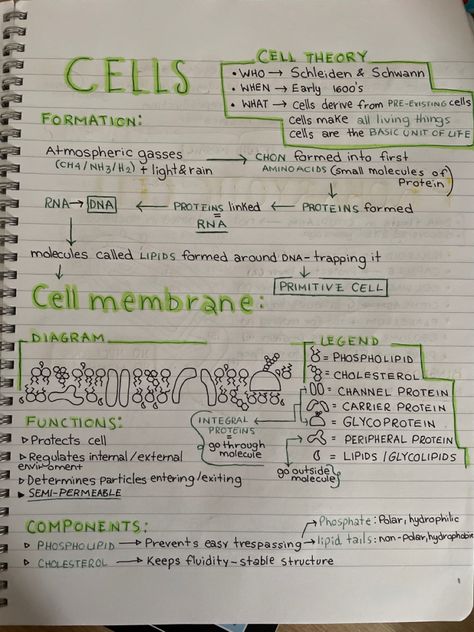 CELLS
CELL THEORY
• WHO → Schleiden & Schwann
• WHEN → Early 1600's
• WHAT → cells derive from PRE-EXISTING cells
cells make all living things
cells are the BASIC UNIT OF LIFE
FORMATION:
Atmospheric gasses → CHON formed into first
(CH4/NH3/H2) + light & rain AMINOACIDS (small molecules of
Protein)
RNA → DNA ← PROTEINS linked ← PROTEINS formed
=
RNA
molecules called LIPIDS formed around DNA - trapping it
PRIMITIVE CELL
Cell membrane:
DIAGRAM
LEGEND
= PHOSPHOLIPID
= CHOLESTEROL
= CHANNEL PROTEIN
= CARRIER PROTEIN
= GLYCOPROTEIN
= PERIPHERAL PROTEIN
= LIPIDS/GLYCOLIPIDS
INTEGRAL
PROTEINS
=
go through
molecule
go outside
molecule
FUNCTIONS:
▹ Protects cell
▹ Regulates internal/external
enviroment
▹ Determines particles entering/exiting
▸ SEMI-PERMEABLE
COMPONENTS:
▹ PHOSPHOLIPID → Prevents easy trespassing
→ Phosphate: Polar, hydrophilic
→ lipid tails: non-polar, hydrophobic
▹ CHOLESTEROL → Keeps fluidity - stable structure